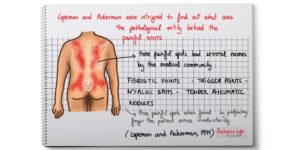 Copeman and Ackerman were intrigued to find out what was
the pathological entity behind the
painful spots
these painful spots had several names
by the medical community
FIBROSITIC POINTS - TRIGGER POINTS -
MYALGIC SPOTS - TENDER RHEUMATIC
NODULES
these painful spots when found by palpating
finger the patient winces involuntarily
(Copeman and Ackerman, 1944)